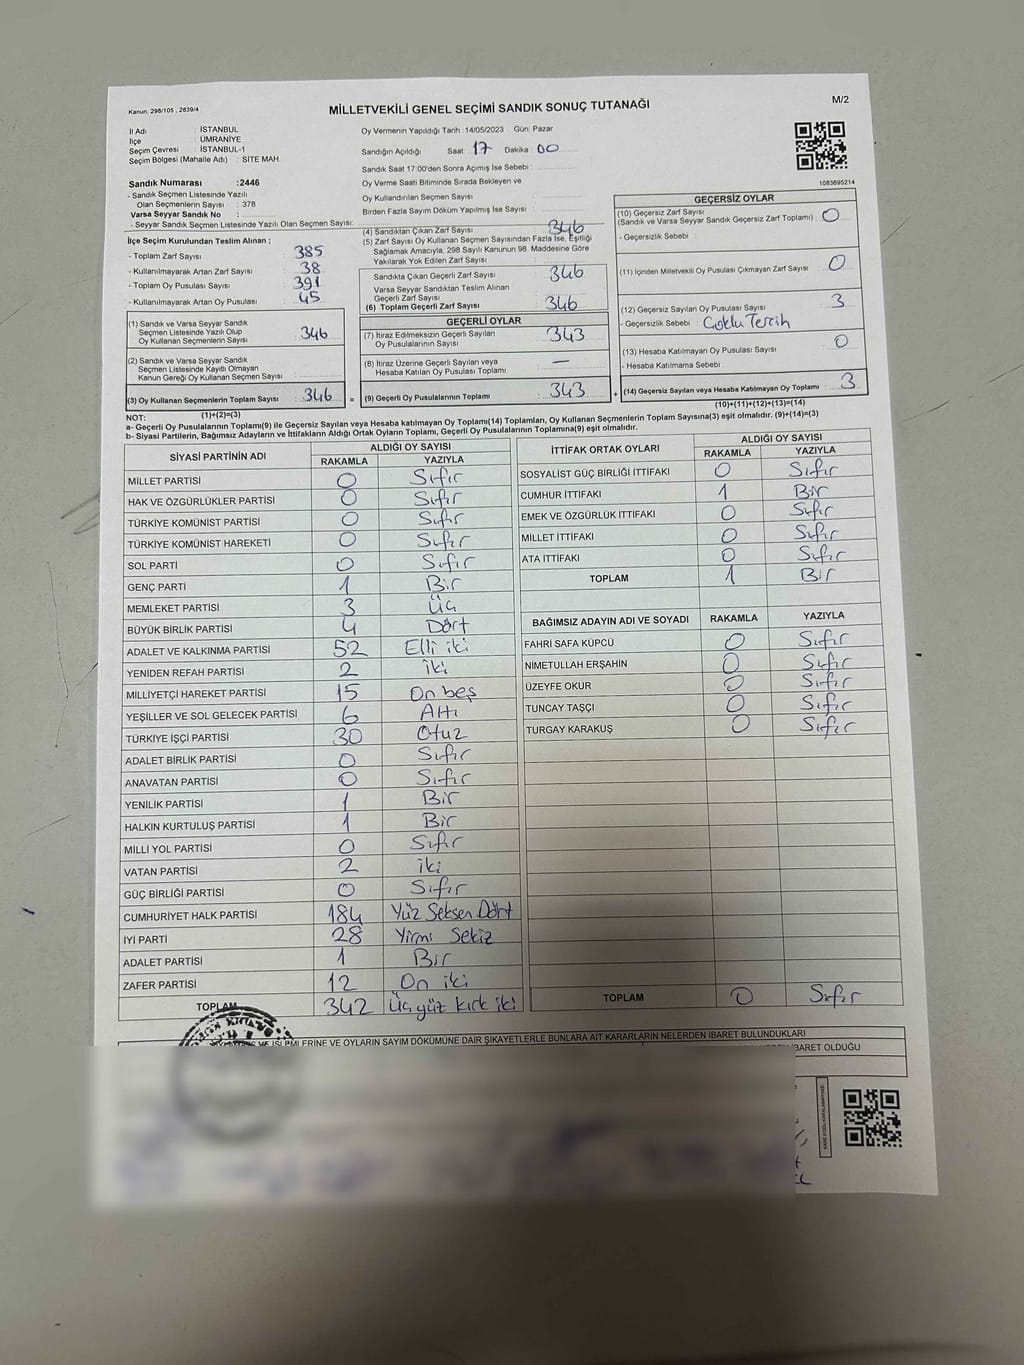 Kanun, 298/105 , 2839/4
MİLLETVEKİLİ GENEL SEÇİMİ SANDIK SONUÇ TUTANAĞI
M/2
İl Adı : İSTANBUL
İlçe : ÜMRANİYE
Seçim Çevresi : İSTANBUL-1
Seçim Bölgesi (Mahalle Adı) : SİTE MAH
Sandık Numarası :2446
- Sandık Seçmen Listesinde Yazılı
Olan Seçmenlerin Sayısı : 378
Varsa Seyyar Sandık No :
- Seyyar Sandık Seçmen Listesinde Yazılı Olan Seçmen Sayısı:
Oy Vermenin Yapıldığı Tarih :14/05/2023 Gün: Pazar
Sandığın Açıldığı Saat 17 Dakika 00
Sandık Saat 17:00'den Sonra Açımış İse Sebebi :
Oy Verme Saati Bitiminde Sırada Bekleyen ve
Oy Kullandırılan Seçmen Sayısı :
Birden Fazla Sayım Döküm Yapılmış İse Sayısı :
1083695214
İlçe Seçim Kurulundan Teslim Alınan ;
- Toplam Zarf Sayısı : 385
- Kullanılmayarak Artan Zarf Sayısı : 38
- Toplam Oy Pusulası Sayısı : 391
- Kullanılmayarak Artan Oy Pusulası : 45
(1) Sandık ve Varsa Seyyar Sandık
Seçmen Listesinde Yazılı Olup
Oy Kullanan Seçmenlerin Sayısı : 346
(2) Sandık ve Varsa Seyyar Sandık
Seçmen Listesinde Kayıtlı Olmayan
Kanun Gereği Oy Kullanan Seçmen Sayısı :
(3) Oy Kullanan Seçmenlerin Toplam Sayısı : 346 =
(1)+(2)=(3)
(4) Sandıktan Çıkan Zarf Sayısı : 346
(5) Zarf Sayısı Oy Kullanan Seçmen Sayısından Fazla İse, Eşitliği
Sağlamak Amacıyla, 298 Sayılı Kanunun 98. Maddesine Göre
Yakılarak Yok Edilen Zarf Sayısı :
Sandıkta Çıkan Geçerli Zarf Sayısı : 346
Varsa Seyyar Sandıktan Teslim Alınan
Geçerli Zarf Sayısı :
(6) Toplam Geçerli Zarf Sayısı : 346
GEÇERLİ OYLAR
(7) İtiraz Edilmeksizin Geçerli Sayılan
Oy Pusulalarının Sayısı : 343
(8) İtiraz Üzerine Geçerli Sayılan veya
Hesaba Katılan Oy Pusulası Toplamı : —
(9) Geçerli Oy Pusulalarının Toplamı : 343 +
GEÇERSİZ OYLAR
(10) Geçersiz Zarf Sayısı
(Sandık ve Varsa Seyyar Sandık Geçersiz Zarf Toplamı) : 0
- Geçersizlik Sebebi :
(11) İçinden Milletvekili Oy Pusulası Çıkmayan Zarf Sayısı : 0
(12) Geçersiz Sayılan Oy Pusulası Sayısı : 3
- Geçersizlik Sebebi : Çoklu Tercih
(13) Hesaba Katılmayan Oy Pusulası Sayısı : 0
- Hesaba Katılmama Sebebi :
(14) Geçersiz Sayılan veya Hesaba Katılmayan Oy Toplamı : 3
(10)+(11)+(12)+(13)=(14)
NOT:
a- Geçerli Oy Pusulalarının Toplamı(9) ile Geçersiz Sayılan veya Hesaba katılmayan Oy Toplamı(14) Toplamları, Oy Kullanan Seçmenlerin Toplam Sayısına(3) eşit olmalıdır. (9)+(14)=(3)
b- Siyasi Partilerin, Bağımsız Adayların ve İttifakların Aldığı Ortak Oyların Toplamı, Geçerli Oy Pusulalarının Toplamına(9) eşit olmalıdır.
SİYASİ PARTİNİN ADI ALDIĞI OY SAYISI
RAKAMLA YAZIYLA
MİLLET PARTİSİ 0 Sıfır
HAK VE ÖZGÜRLÜKLER PARTİSİ 0 Sıfır
TÜRKİYE KOMÜNİST PARTİSİ 0 Sıfır
TÜRKİYE KOMÜNİST HAREKETİ 0 Sıfır
SOL PARTİ 0 Sıfır
GENÇ PARTİ 1 Bir
MEMLEKET PARTİSİ 3 Üç
BÜYÜK BİRLİK PARTİSİ 4 Dört
ADALET VE KALKINMA PARTİSİ 52 Elli iki
YENİDEN REFAH PARTİSİ 2 iki
MİLLİYETÇİ HAREKET PARTİSİ 15 On beş
YEŞİLLER VE SOL GELECEK PARTİSİ 6 Altı
TÜRKİYE İŞÇİ PARTİSİ 30 Otuz
ADALET BİRLİK PARTİSİ 0 Sıfır
ANAVATAN PARTİSİ 0 Sıfır
YENİLİK PARTİSİ 1 Bir
HALKIN KURTULUŞ PARTİSİ 1 Bir
MİLLİ YOL PARTİSİ 0 Sıfır
VATAN PARTİSİ 2 iki
GÜÇ BİRLİĞİ PARTİSİ 0 Sıfır
CUMHURİYET HALK PARTİSİ 184 Yüz Seksen Dört
İYİ PARTİ 28 Yirmi Sekiz
ADALET PARTİSİ 1 Bir
ZAFER PARTİSİ 12 On iki
TOPLAM 342 Üç yüz kırk iki
İTTİFAK ORTAK OYLARI ALDIĞI OY SAYISI
RAKAMLA YAZIYLA
SOSYALİST GÜÇ BİRLİĞİ İTTİFAKI 0 Sıfır
CUMHUR İTTİFAKI 1 Bir
EMEK VE ÖZGÜRLÜK İTTİFAKI 0 Sıfır
MİLLET İTTİFAKI 0 Sıfır
ATA İTTİFAKI 0 Sıfır
TOPLAM 1 Bir
BAĞIMSIZ ADAYIN ADI VE SOYADI RAKAMLA YAZIYLA
FAHRİ SAFA KÜPCÜ 0 Sıfır
NİMETULLAH ERŞAHİN 0 Sıfır
ÜZEYFE OKUR 0 Sıfır
TUNCAY TAŞÇI 0 Sıfır
TURGAY KARAKUŞ 0 Sıfır
TOPLAM 0 Sıfır
VE OYLARIN SAYIM DÖKÜMÜNE DAİR ŞİKAYETLERLE BUNLARA AİT KARARLARIN NELERDEN İBARET BULUNDUKLARI
İBARET OLDUĞU